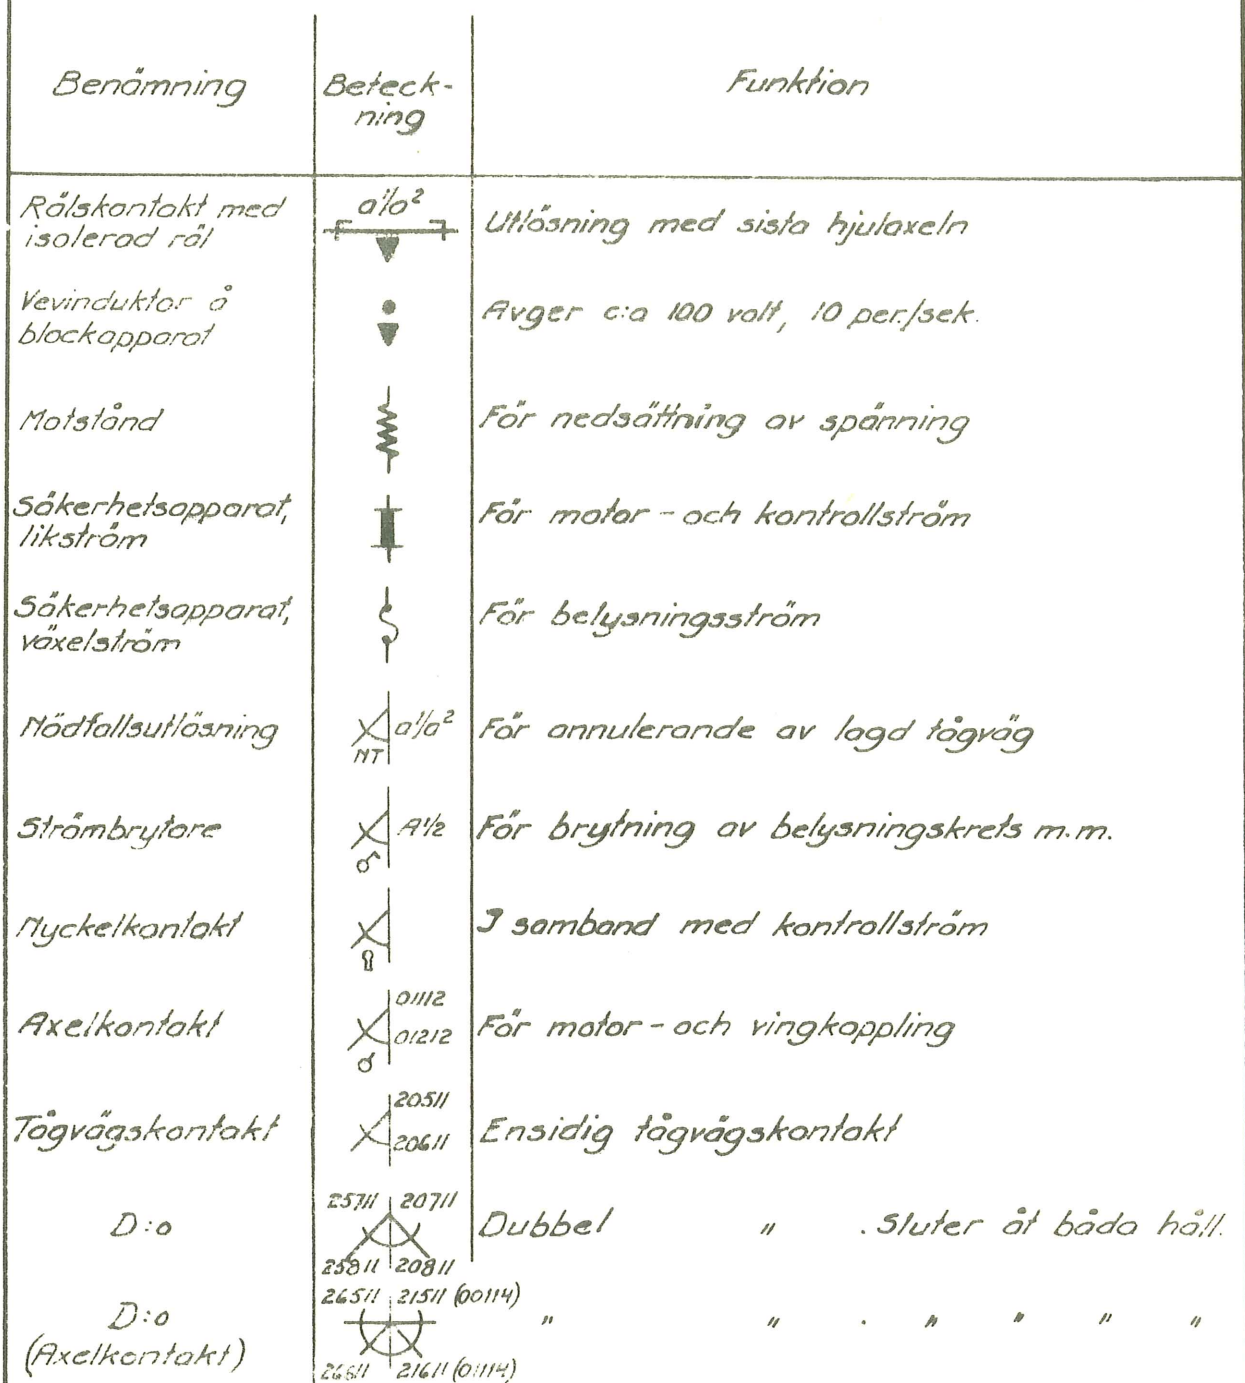 Benämning
Beteck-
ning
Funktion
Rälskontakt med
isolerad räl
a¹/a²
Utlösning med sista hjulaxeln
Vevinduktor å
blockapparat
Avger c:a 100 volt, 10 per./sek.
Motstånd
För nedsättning av spänning
Säkerhetsapparat,
likström
För motor- och kontrollström
Säkerhetsapparat,
växelström
För belysningsström
Nödfallsutlösning
a¹/a²
NT
För annulerande av lagd tågväg
Strömbrytare
A1/2
För brytning av belysningskrets m.m.
Nyckelkontakt
I samband med kontrollström
Axelkontakt
01112
01212
För motor- och vingkoppling
Tågvägskontakt
20511
20611
Ensidig tågvägskontakt
D:o
25711 20711
25811 20811
Dubbel " . Sluter åt båda håll.
D:o
(Axelkontakt)
26511 21511 (00114)
26611 21611 (01114)
" " . " " " "